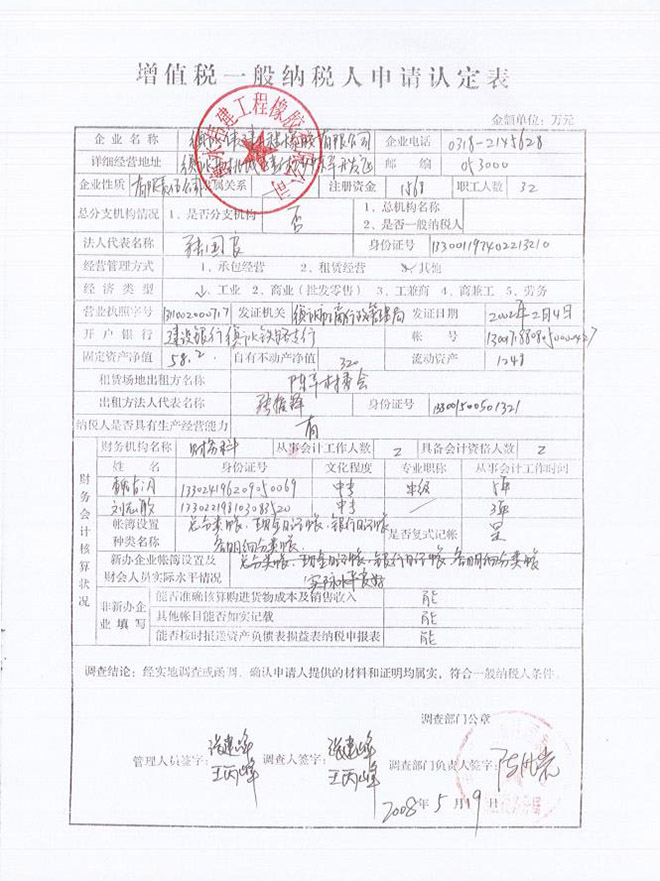 增值税一般纳税人申请认定表
金额单位：万元
企业名称 有限公司 企业电话 0318-2145628
详细经营地址 邮编 053000
企业性质 有限责任公司 隶属关系 注册资金 1568 职工人数 32
总分支机构情况 1、是否分支机构 否 1、总机构名称
2、是否一般纳税人
法人代表名称 张国良 身份证号
经营管理方式 1、承包经营 2、租赁经营 3、其他
经济类型 1、工业 2、商业（批发零售） 3、工兼商 4、商兼工 5、劳务
营业执照字号 发证机关 发证日期 2002年2月4日
开户银行 建设银行 支行 帐号
固定资产净值 58.2 自有不动产净值 320 流动资产 1248
租赁场地出租方名称 陈辛村委会
出租方法人代表名称 身份证号
纳税人是否具有生产经营能力 有
财务会计核算状况
财务机构名称 财务科 从事会计工作人数 2 具备会计资格人数 2
姓名 身份证号 文化程度 专业职称 从事会计工作时间
133024196209050069 中专 中级 5年
中专 3年
帐簿设置种类名称 总分类帐、现金日记帐、银行日记帐、各明细分类帐 是否复式记帐 是
新办企业帐簿设置及财会人员实际水平情况 总分类帐、现金日记帐、银行日记帐、各明细分类帐 实际水平良好
非新办企业填写 能否准确核算购进货物成本及销售收入 能
其他帐目能否如实记载 能
能否按时报送资产负债表损益表纳税申报表 能
调查结论：经实地调查或函调，确认申请人提供的材料和证明均属实，符合一般纳税人条件。
调查部门公章
管理人员签字： 王丙峰 调查人签字： 王丙峰 调查部门负责人签字：
2008年5月19日